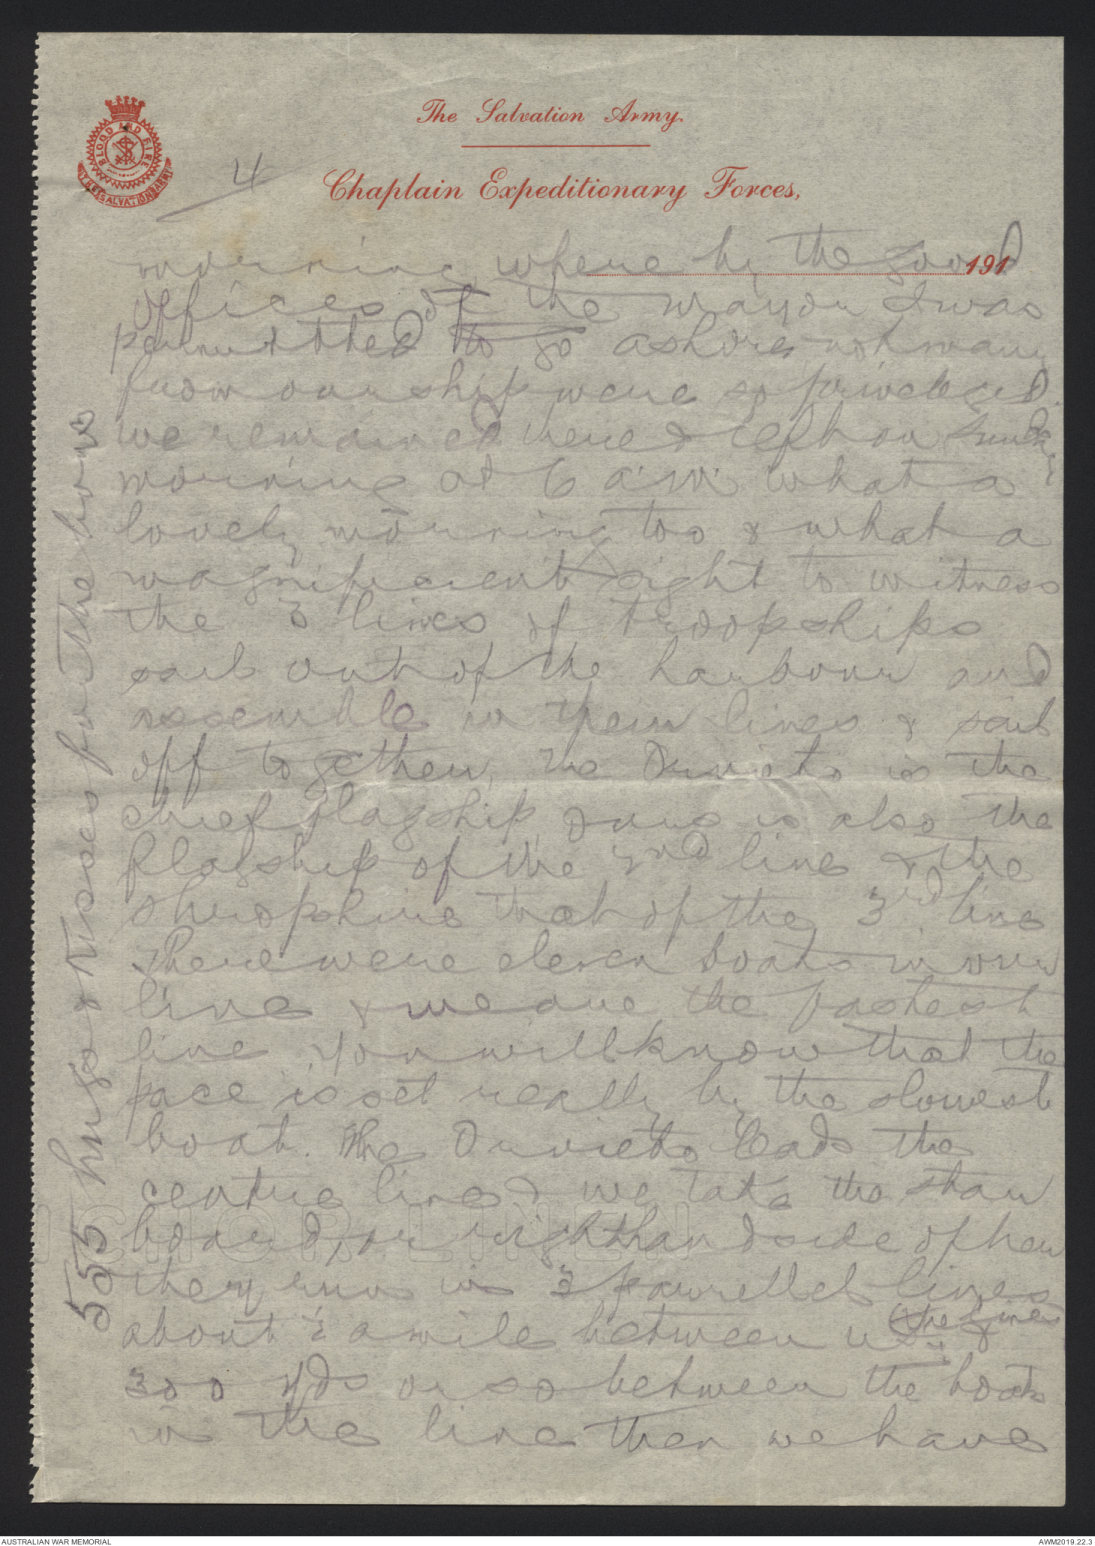 The Salvation Army.
BLOOD AND FIRE
SALVATION ARMY
4
Chaplain Expeditionary Forces,
191
morning where by the good
offices of the mayor I was
permitted to go ashore, not many
from our ship were so priveleged.
we remained there & left on Sunday
morning at 6 a.m. what a
lovely morning too & what a
magnificient sight to witness
the 3 lines of troopships
sail out of the harbour and
assemble in their lines & sail
off together, The Orvieto is the
chief flagship, ours is also the
flagship of the 2nd line & the
Shropshire that of the 3rd line
There were eleven boats in our
line & we are the fastest
line you will know that the
pace is set really by the slowest
boat. The Orvieto leads the
centre line & we take the star
board, or righthand side of her
they run in 3 parrellel lines
about ½ a mile between us (the lines) &
300 yds or so between the boats
in the line then we have
555 hugs & kisses for the boys
AUSTRALIAN WAR MEMORIAL
AWM2019.22.3